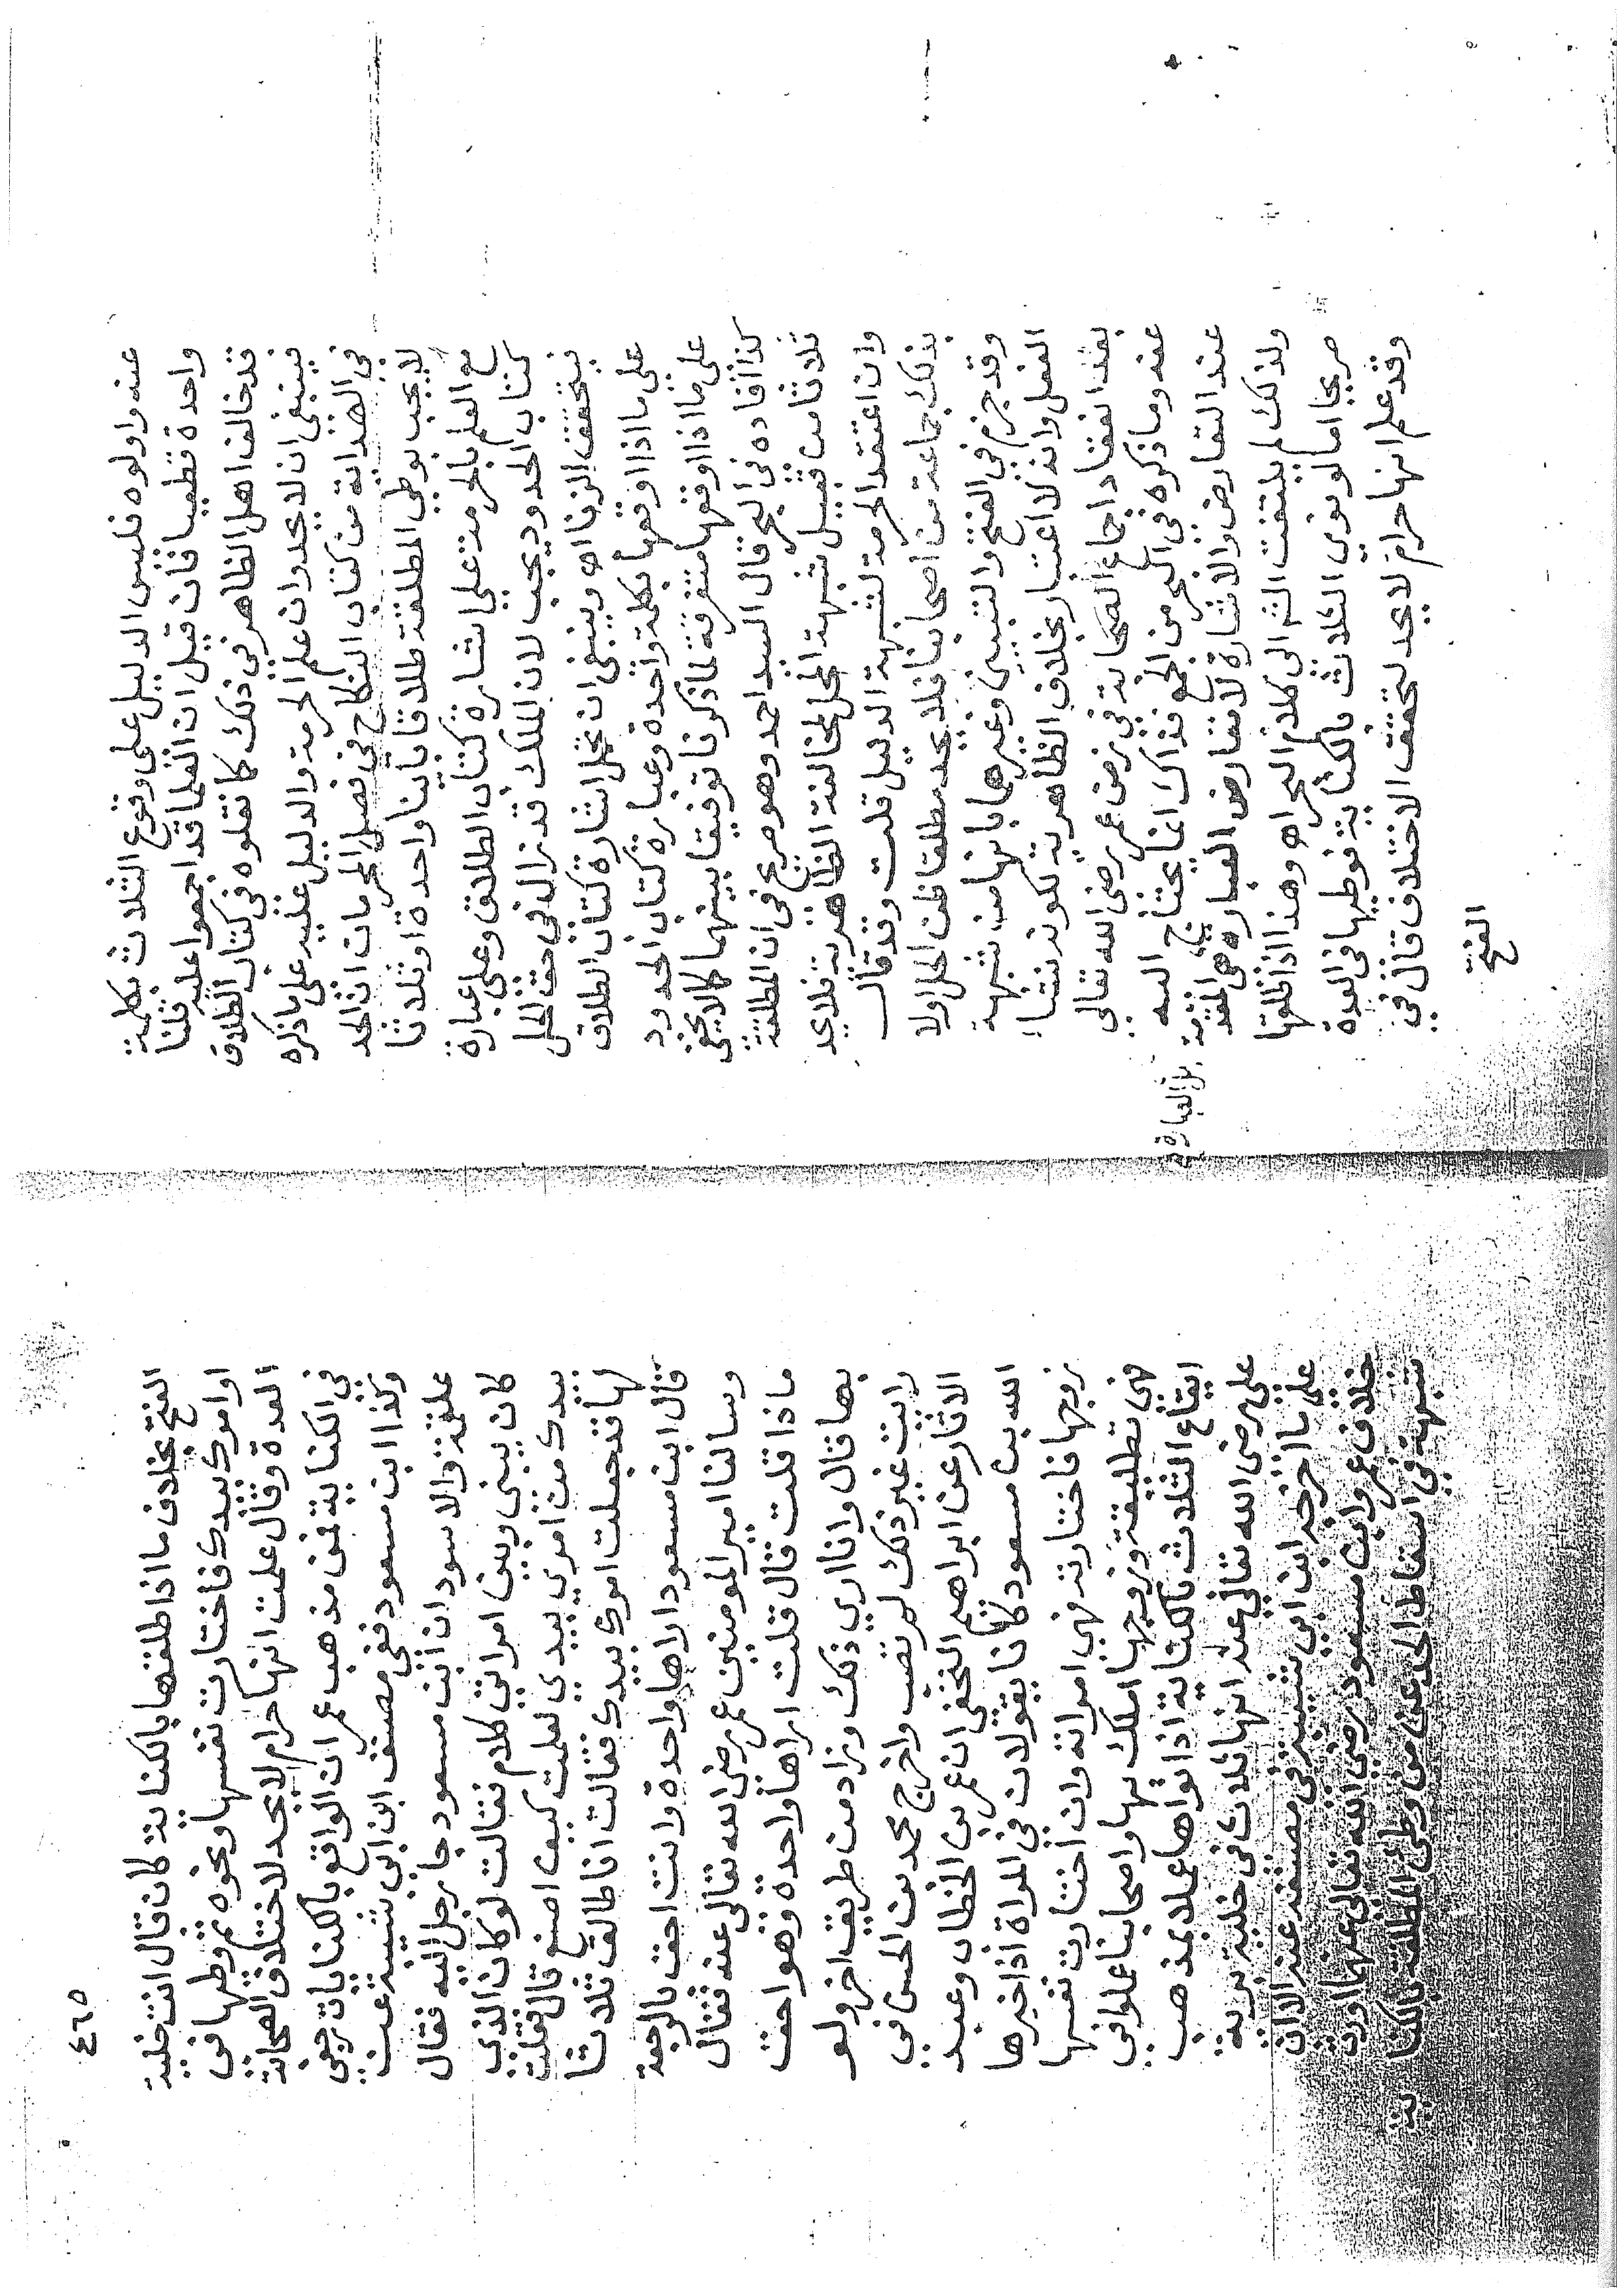 عنه واولوه فليس الدليل على وقوع الثلاث بكلمة
واحدة قطعيا فان قيل ان العلما قد اجمعوا عليه قلنا
قد خالف اهل الظاهر في ذلك كما نقلوه في كتاب الطلاق
فينبغي ان لا يحد وان علم الحرمة والدليل عليه على ما ذكره
في الهداية من كتاب النكاح في فصل المحرمات ان الحد
لا يجب بوطي المطلقة طلاقا باينا واحدة او ثلاثا
مع العلم بالحرمة على اشارة كتاب الطلاق وعلى عبارة
كتاب الحدود يجب لان الملك قد زال في حق الحل
فيتحقق الزنا اه وينبغي ان تحمل اشارة كتاب الطلاق
على ما اذا اوقعها بكلمة واحدة وعبارة كتاب الحدود
على ما اذا اوقعها متفرقة لما ذكرنا توفيقا بينهما كما لا يخفى
كذا افاده في البحر قال السيد احمد وهو صريح في ان المطلقة
ثلاثا من قبيل شبهة المحل لمخالفة الظاهرية فلا يحد
وان اعتقد الحرمة لشبهة الدليل قلت وقد قال
بذلك جماعة من اصحابنا فلا يحد مطلقا ظن الحل اولا
وقد جزم في الفتح والتبيين وغيرهما بانها من شبهة
الفعل وانه لا اعتبار بخلاف الظاهرية لكونه نشا
بعد انعقاد اجماع الصحابة في زمن عمر رضي الله تعالى
عنه وما ذكره في البحر من الجمع فذاك انما يحتاج اليه
عند التعارض والاشارة لا تعارض العبارة هي المقدمة
بل العبارة صح
ولذلك لم يلتفت الشر الى كلام البحر اه وهذا اذا طلقها
صريحا اما لو نوى الثلاث بالكناية فوطيها في العدة
وقد علم انها حرام لا يحد لتحقق الاختلاف قال في
الفتح
٤٦٥
الفتح بخلاف ما اذا طلقها بالكناية كان قال انت خلية
او امرك بيدك فاختارت نفسها ونحوه ثم وطيها في
العدة وقال علمت انها حرام لا يحد لاختلاف الصحابة
في الكناية فمن مذهب عمر ان الواقع بالكنايات رجعي
وكذا ابن مسعود ففي مصنف ابن ابي شيبة عن
علقمة والاسود ان ابن مسعود جا رجل اليه فقال
كان بيني وبين امراتي كلام فقالت لو كان الذي
بيدك من امري بيدي لعلمت كيف اصنع قال فقلت
لها قد جعلت امرك بيدك فقالت انا طالق ثلاثا
قال ابن مسعود اراها واحدة وانت احق بالرجعة
وسالنا امير المومنين عمر رضي الله تعالى عنه فقال
ماذا قلت قال قلت اراها واحدة وهو احق
بها قال وانا اري ذلك وزاد من طريق اخر ولو
رايت غير ذلك لم تصب واخرج محمد بن الحسن في
الاثار عن ابراهيم النخعي ان عمر بن الخطاب وعبد
الله بن مسعود كانا يقولان في المراة اذا خيرها
زوجها فاختارته فهي امراته وان اختارت نفسها
فهي تطليقة وزوجها املك بها واصحابنا عملوا في
ايقاع الثلاث بالكناية اذا نواها عملا بمذهب
علي رضي الله تعالى عنه انها ثلاث في خلية برية
على ما اخرجه ابن ابي شيبة في مصنفه عنه الا ان
خلاف عمر وابن مسعود رضي الله تعالى عنهما اورث
شبهة في اسقاط الحد عن من وطي المطلقة بالكناية